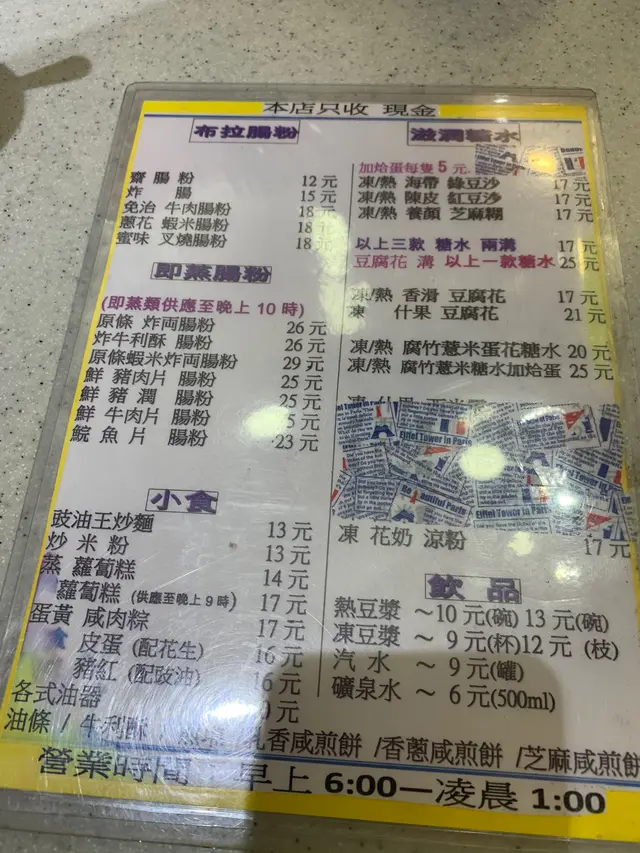 本店只收 現金
布拉腸粉
齋 腸 粉 12 元
炸 腸 15 元
免治 牛肉腸粉 18 元
蔥花 蝦米腸粉 18 元
蜜味 叉燒腸粉 18 元
即蒸腸粉
(即蒸類供應至晚上 10 時)
原條 炸両腸粉 26 元
炸牛利酥 腸粉 26 元
原條蝦米炸両腸粉 29 元
鮮 豬肉片 腸粉 25 元
鮮 豬 潤 腸粉 25 元
鮮 牛肉片 腸粉 5 元
鯇 魚 片 腸粉 23 元
小食
豉油王炒麵 13 元
炒 米 粉 13 元
蒸 蘿蔔糕 14 元
蘿蔔糕 (供應至晚上 9 時) 17 元
蛋黃 咸肉粽 17 元
皮蛋 (配花生) 16 元
豬紅 (配豉油) 16 元
各式油器 元
油條 / 牛利酥
滋潤糖水
加烚蛋每隻 5 元
凍/熱 海帶 綠豆沙 17 元
凍/熱 陳皮 紅豆沙 17 元
凍/熱 養顏 芝麻糊 17 元
以上三款 糖水 兩溝 17 元
豆腐花 溝 以上一款糖水 25 元
凍/熱 香滑 豆腐花 17 元
凍 什果 豆腐花 21 元
凍/熱 腐竹薏米蛋花糖水 20 元
凍/熱 腐竹薏米糖水加烚蛋 25 元
凍 花奶 涼粉 17 元
飲 品
熱豆漿 ～10 元(碗) 13 元(碗)
凍豆漿 ～ 9 元(杯)12 元 (枝)
汽 水 ～ 9 元(罐)
礦泉水 ～ 6 元(500ml)
乳香咸煎餅 /香蔥咸煎餅 /芝麻咸煎餅
營業時間 早上 6:00—凌晨 1:00